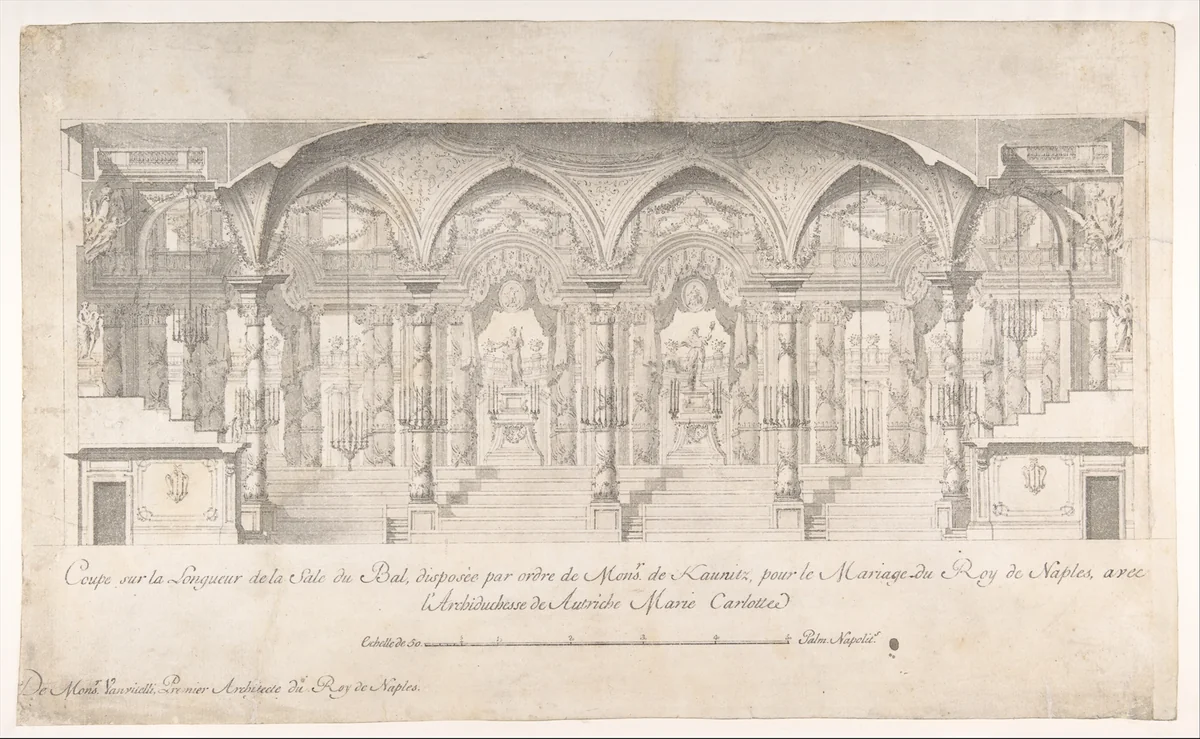 Coupe sur la Longueur de la Sale du Bal, disposée par ordre de Mons.r de Kaunitz, pour le Mariage du Roy de Naples, avec
l'Archiduchesse de Autriche Marie Carlotte
Echelle de 50. Palm. Napolit.i
De Mons.r Vanvitelli, Premier Architecte du Roy de Naples.